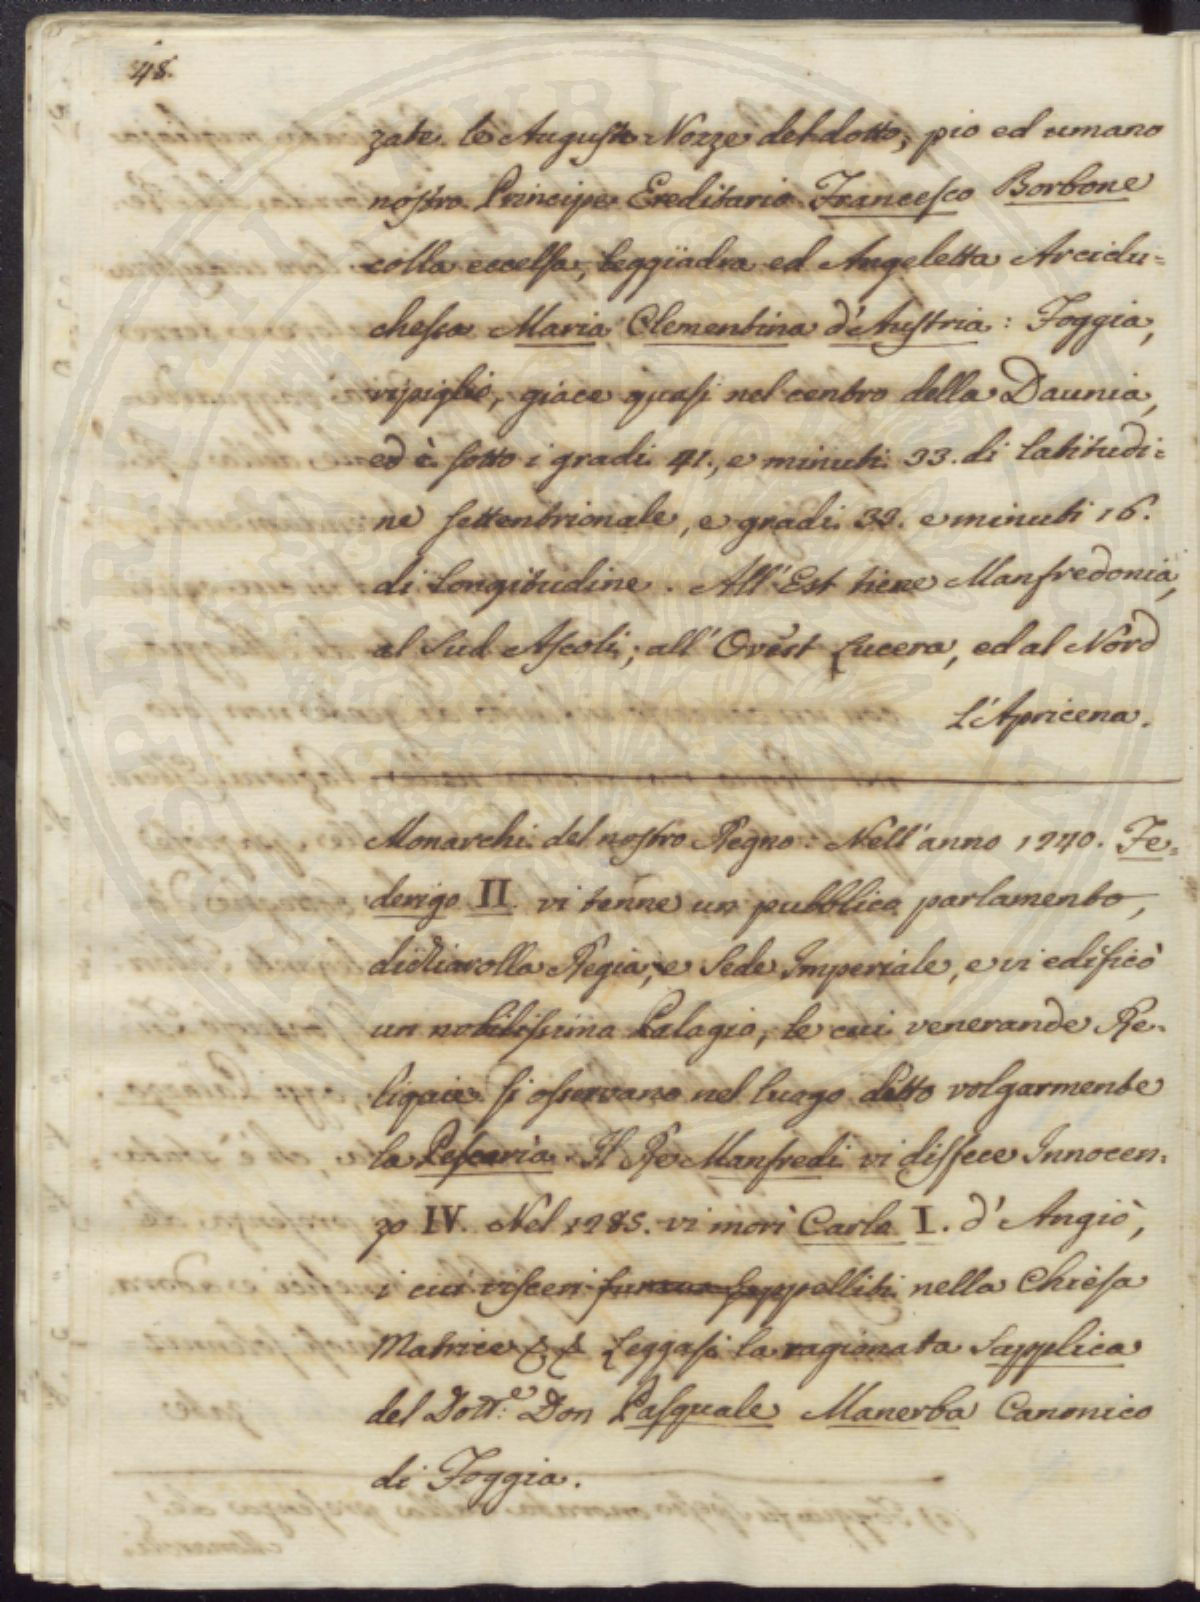 48.
zate le Auguste Nozze del dotto, pio ed umano
nostro Principe Ereditario Francesco Borbone
colla eccelsa, leggiadra ed Angeletta Arcidu=
chessa Maria Clementina d'Austria: Foggia,
ripiglio, giace quasi nel centro della Daunia,
ed è sotto i gradi 41., e minuti 33. di latitudi=
ne settentrionale, e gradi 32. e minuti 16.
di longitudine. All'Est tiene Manfredonia,
al Sud Ascoli; all'Ovest Lucera, ed al Nord
L'Apricena.
Monarchi del nostro Regno: Nell'anno 1240. Fe=
derigo II. vi tenne un pubblico parlamento,
dichiarolla Regia, e Sede Imperiale, e vi edificò
un nobilissimo Palagio, le cui venerande Re=
liquie si osservano nel luogo detto volgarmente
la Pescaria. Il Re Manfredi vi disfece Innocen=
zo IV. Nel 1285. vi morì Carlo I. d'Angiò,
i cui visceri furono seppelliti nella Chiesa
Matrice &c &c Leggasi la ragionata Supplica
del Dott.e Don Pasquale Manerba Canonico
di Foggia.